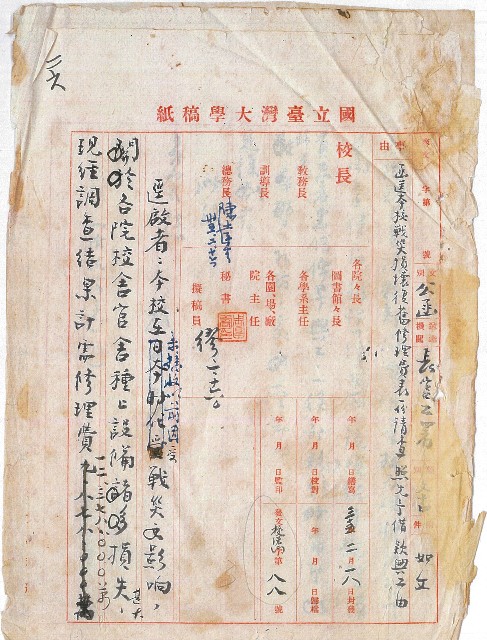 國立臺灣大學稿紙
事由
函送本校戰災損壞復舊修理費表一份請查照先予借款興工由
年 字第 號
文別 公函
送達機關 長官公署
件 如文
校長
教務長
訓導長
總務長
各院々長
圖書館々長
各學系主任
各園、場、廠
院主任
秘書
擬稿員
年 月 日繕寫
年 月 日校對
年 月 日監印
二月 日封發
年 月 日歸檔
發文 第八八號
逕啟者：本校在未接收以前因受戰災之影響，
關於各院校舍官舍種上設備諸多損失，
現經調查結果計需修理費